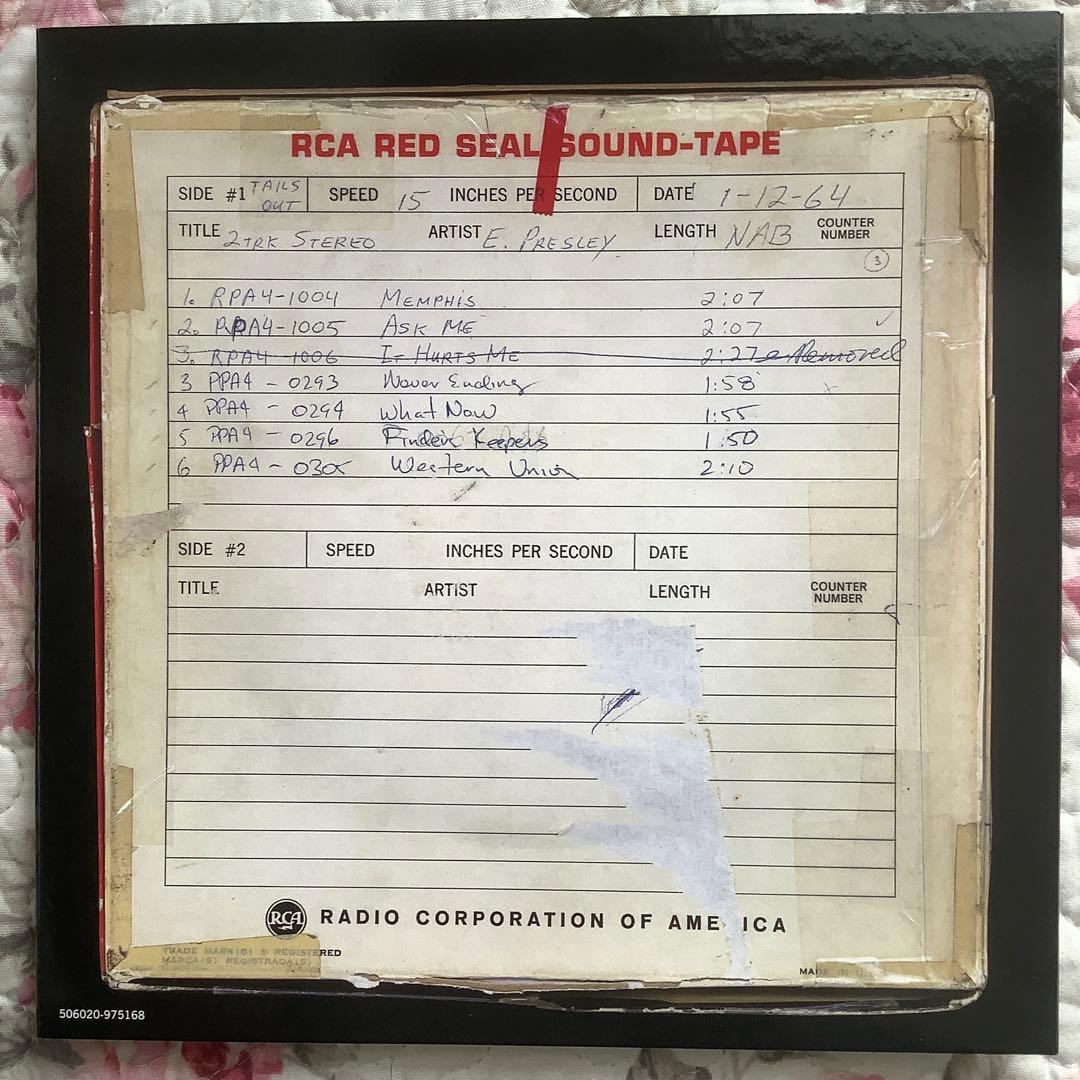 RCA RED SEAL SOUND-TAPE
SIDE #1 TAILS OUT SPEED 15 INCHES PER SECOND DATE 1-12-64
TITLE 2TRK STEREO ARTIST E. PRESLEY LENGTH NAB COUNTER NUMBER
3
1. RPA4-1004 MEMPHIS 2:07
2. RPA4-1005 ASK ME 2:07 ✓
3. RPA4-1006 IT HURTS ME 2:27 Removed
3 PPA4 - 0293 Never Ending 1:58
4 PPA4 - 0294 What Now 1:55
5 PPA4 - 0296 Finders Keepers 1:50
6 PPA4 - 0305 Western Union 2:10
SIDE #2 SPEED INCHES PER SECOND DATE
TITLE ARTIST LENGTH COUNTER NUMBER
RCA RADIO CORPORATION OF AME ICA
TRADE MARK(S) ® REGISTERED
MARCA(S) REGISTRADA(S)
506020-975168